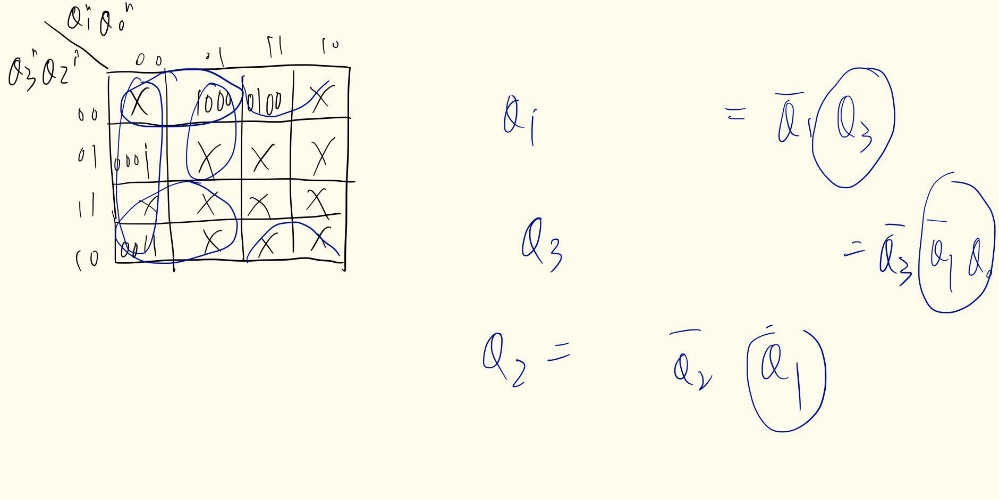 Q₁ⁿ Q₀ⁿ
Q₃ⁿ Q₂ⁿ
00 01 11 10
00 X 1000 0100 X
01 0001 X X X
11 X X X X
10 001 X X X
Q₁ = Q̅₁ Q₃
Q₃ = Q̅₃ Q̅₁ Q₀
Q₂ = Q̅₂ Q̅₁